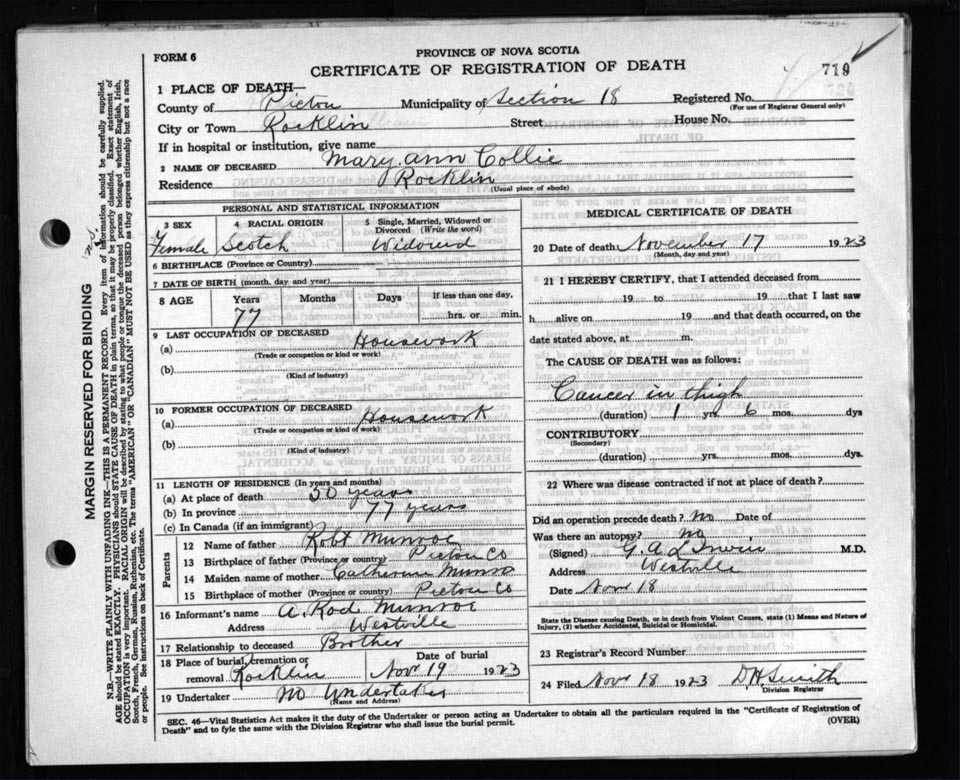 PROVINCE OF NOVA SCOTIA
FORM 6
CERTIFICATE OF REGISTRATION OF DEATH
719
1 PLACE OF DEATH—
County of Pictou Municipality of Section 18 Registered No.
(For use of Registrar General only)
City or Town Rocklin Street House No.
If in hospital or institution, give name
2 NAME OF DECEASED Mary Ann Collie
Residence Rocklin
(Usual place of abode)
PERSONAL AND STATISTICAL INFORMATION
3 SEX 4 RACIAL ORIGIN 5 Single, Married, Widowed or Divorced (Write the word)
Female Scotch Widowed
6 BIRTHPLACE (Province or Country)
7 DATE OF BIRTH (month, day and year)
8 AGE Years Months Days If less than one day,
77 hrs. or min.
9 LAST OCCUPATION OF DECEASED
(a) Housework
(Trade or occupation or kind or work)
(b)
(Kind of industry)
10 FORMER OCCUPATION OF DECEASED
(a) Housework
(Trade or occupation or kind of work)
(b)
(Kind of industry)
11 LENGTH OF RESIDENCE (In years and months)
(a) At place of death 50 years
(b) In province 77 years
(c) In Canada (if an immigrant)
Parents
12 Name of father Robt Munroe
13 Birthplace of father (Province or country) Pictou Co
14 Maiden name of mother Catherine Munro
15 Birthplace of mother (Province or country) Pictou Co
16 Informant's name A. Rod Munroe
Address Westville
17 Relationship to deceased Brother
18 Place of burial, cremation or removal Rocklin Date of burial Nov 19 1923
19 Undertaker No Undertaker
(Name and Address)
MEDICAL CERTIFICATE OF DEATH
20 Date of death November 17 1923
(Month, day and year)
21 I HEREBY CERTIFY, that I attended deceased from
19 to 19 that I last saw
h alive on 19 and that death occurred, on the
date stated above, at m.
The CAUSE OF DEATH was as follows:
Cancer in thigh
(duration) 1 yrs. 6 mos. dys
CONTRIBUTORY
(Secondary)
(duration) yrs. mos. dys
22 Where was disease contracted if not at place of death?
Did an operation precede death? No Date of
Was there an autopsy? No
(Signed) G. A. L. Irwin M.D.
Address Westville
Date Nov 18
State the Disease causing Death, or in death from Violent Causes, state (1) Means and Nature of
Injury, (2) whether Accidental, Suicidal or Homicidal.
23 Registrar's Record Number
24 Filed Nov 18 1923 D. H. Smith
Division Registrar
SEC. 46—Vital Statistics Act makes it the duty of the Undertaker or person acting as Undertaker to obtain all the particulars required in the "Certificate of Registration of
Death" and to fyle the same with the Division Registrar who shall issue the burial permit.
(OVER)
MARGIN RESERVED FOR BINDING
N.B.—WRITE PLAINLY WITH UNFADING INK—THIS IS A PERMANENT RECORD. Every item of information should be carefully supplied.
AGE should be stated EXACTLY. PHYSICIANS should STATE CAUSE OF DEATH in plain terms, so that it may be properly classified. Exact statement of
OCCUPATION is very important. RACIAL ORIGIN will be described by stating to what people or tongue the deceased person belonged whether English, Irish,
Scotch, French, German, Russian, Ruthenian, etc. The terms "AMERICAN" OR "CANADIAN" MUST NOT BE USED as they express citizenship but not a race
or people. See instructions on back of Certificate.